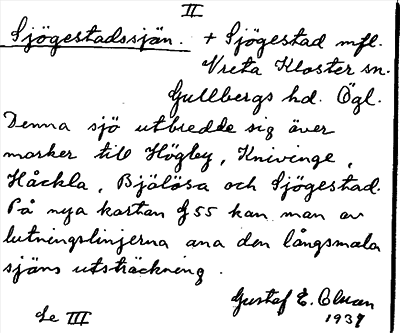 II
Sjögestadssjän. + Sjögestad mfl.
Vreta Kloster sn.
Gullbergs hd. Ögl.
Denna sjö utbredde sig över
marker till Högby, Knivinge,
Håckla, Bjälösa och Sjögestad.
På nya kartan J 55 kan man av
lutningslinjerna ana den långsmala
sjäns utsträckning.
Gustaf E. Olman
1937
Se III